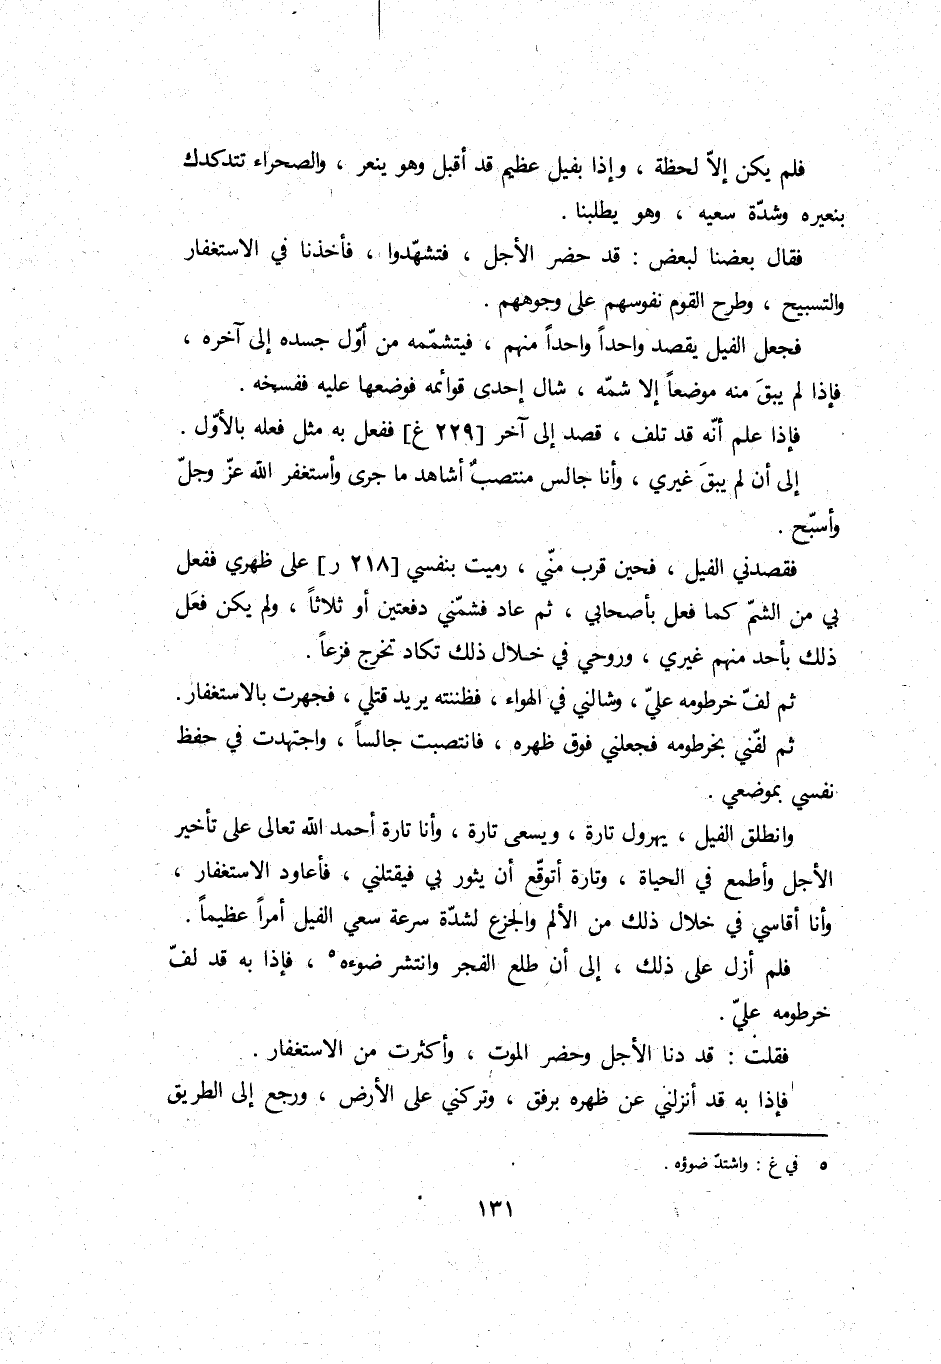 فلم يكن إلاّ لحظة ، وإذا بفيل عظيم قد أقبل وهو ينعر ، والصحراء تتدكدك
بنعيره وشدّة سعيه ، وهو يطلبنا .
فقال بعضنا لبعض : قد حضر الأجل ، فتشهّدوا ، فأخذنا في الاستغفار
والتسبيح ، وطرح القوم نفوسهم على وجوههم .
فجعل الفيل يقصد واحداً واحداً منهم ، فيتشمّمه من أوّل جسده إلى آخره ،
فإذا لم يبقَ منه موضعاً إلا شمّه ، شال إحدى قوائمه فوضعها عليه ففسخه .
فإذا علم أنّه قد تلف ، قصد إلى آخر [٢٢٩ غ] ففعل به مثل فعله بالأوّل .
إلى أن لم يبقَ غيري ، وأنا جالس منتصبٌ أشاهد ما جرى وأستغفر الله عزّ وجلّ
وأسبّح .
فقصدني الفيل ، فحين قرب منّي ، رميت بنفسي [٢١٨ ر] على ظهري ففعل
بي من الشمّ كما فعل بأصحابي ، ثم عاد فشمّني دفعتين أو ثلاثاً ، ولم يكن فعَل
ذلك بأحد منهم غيري ، وروحي في خلال ذلك تكاد تخرج فزعاً .
ثم لفّ خرطومه عليّ ، وشالني في الهواء ، فظننته يريد قتلي ، فجهرت بالاستغفار .
ثم لفّني بخرطومه فجعلني فوق ظهره ، فانتصبت جالساً ، واجتهدت في حفظ
نفسي بموضعي .
وانطلق الفيل ، يهرول تارة ، ويسعى تارة ، وأنا تارة أحمد الله تعالى على تأخير
الأجل وأطمع في الحياة ، وتارة أتوقّع أن يثور بي فيقتلني ، فأعاود الاستغفار ،
وأنا أقاسي في خلال ذلك من الألم والجزع لشدّة سرعة سعي الفيل أمراً عظيماً .
فلم أزل على ذلك ، إلى أن طلع الفجر وانتشر ضوءه٥ ، فإذا به قد لفّ
خرطومه عليّ .
فقلت : قد دنا الأجل وحضر الموت ، وأكثرت من الاستغفار .
فإذا به قد أنزلني عن ظهره برفق ، وتركني على الأرض ، ورجع إلى الطريق
٥ في غ : واشتدّ ضوؤه .
١٣١